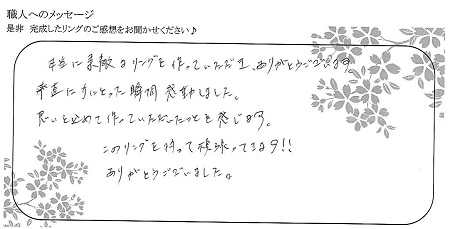 職人へのメッセージ
是非 完成したリングのご感想をお聞かせください♪
本当に素敵なリングを作っていただき、ありがとうございます。
手にとった瞬間 感動しました。
思いを込めて作っていただいたことを感じます。
このリングを持って頑張ってきます!!
ありがとうございました。